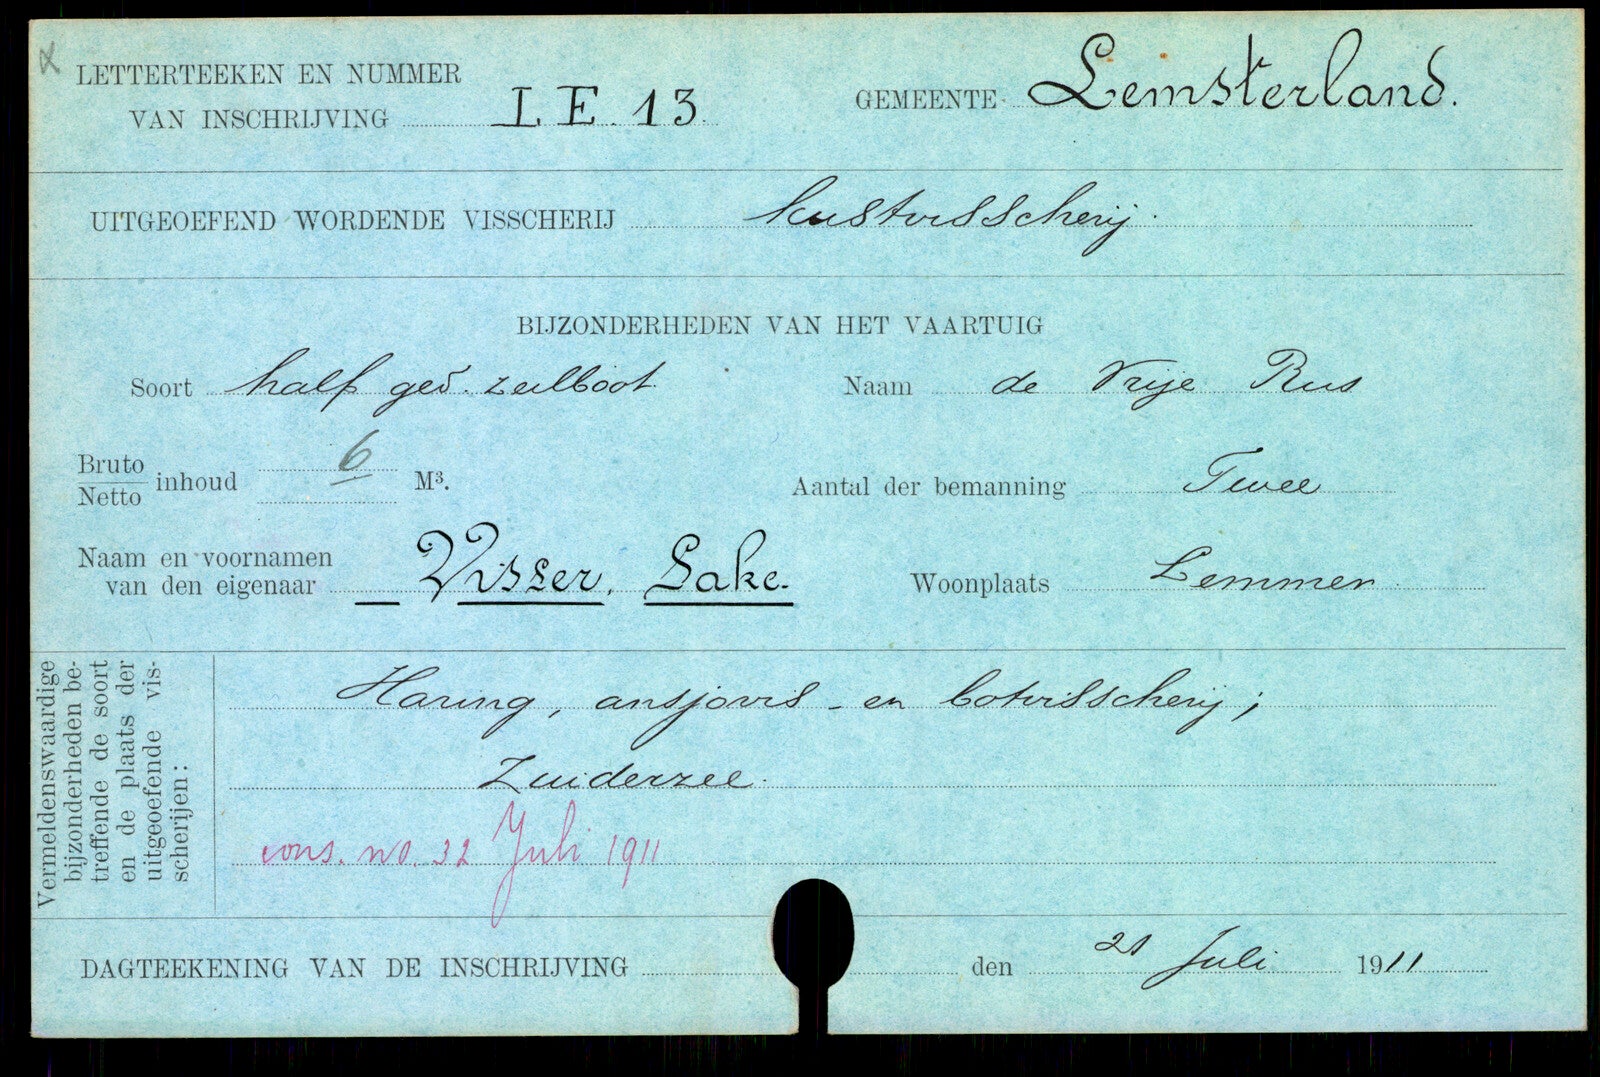 LETTERTEEKEN EN NUMMER
VAN INSCHRIJVING L E. 13.
GEMEENTE Lemsterland.
UITGEOEFEND WORDENDE VISSCHERIJ kustvisscherij.
BIJZONDERHEDEN VAN HET VAARTUIG
Soort half ged. zeilboot
Naam de Vrije Rus
Bruto
Netto inhoud 6 M³.
Aantal der bemanning Twee
Naam en voornamen
van den eigenaar Visser, Lake.
Woonplaats Lemmer
Vermeldenswaardige
bijzonderheden be-
treffende de soort
en de plaats der
uitgeoefende vis-
scherijen:
Haring, ansjovis - en botvisscherij;
Zuiderzee.
cons. no. 32 Juli 1911
DAGTEEKENING VAN DE INSCHRIJVING den 21 Juli 1911